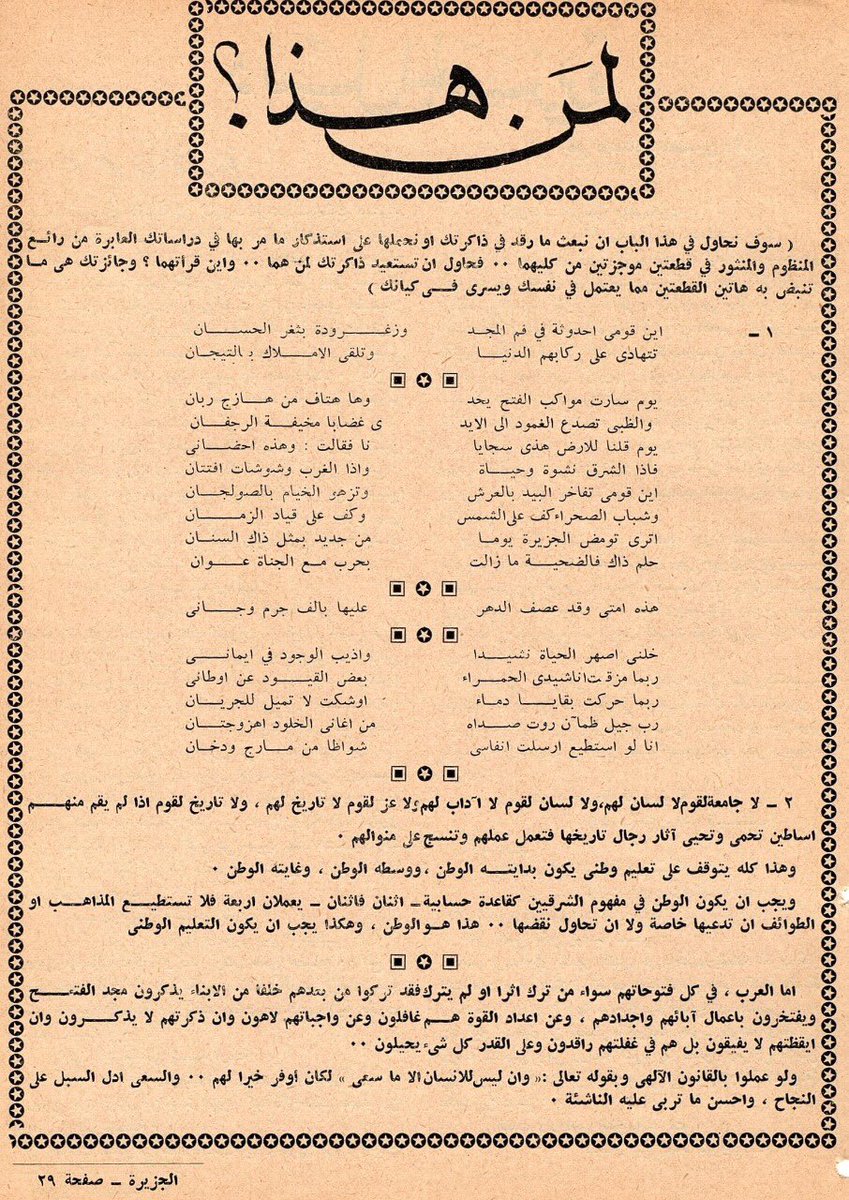 لمَن هذا ؟
( سوف نحاول في هذا الباب ان نبعث ما رقد في ذاكرتك او نحملها على استذكار ما مر بها في دراساتك العابرة من رائع
المنظوم والمنثور في قطعتين موجزتين من كليهما ٠٠ فحاول ان تستعيد ذاكرتك لمن هما ٠٠ واين قرأتهما ؟ وجائزتك هى ما
تنبض به هاتين القطعتين مما يعتمل في نفسك ويسرى فى كيانك )
١ ــ اين قومى احدوثة في فم المجد وزغرودة بثغر الحسان
تتهادى على ركابهم الدنيا وتلقى الاملاك بالتيجان
يوم سارت مواكب الفتح يحد وها هتاف من هازج ربان
والظبى تصدع الغمود الى الايد ى غضابا مخيفة الرجفان
يوم قلنا للارض هذى سجايا نا فقالت : وهذه احضانى
فاذا الشرق نشوة وحياة واذا الغرب وشوشات افتتان
اين قومى تفاخر البيد بالعرش وتزهو الخيام بالصولجان
وشباب الصحراء كف على الشمس وكف على قياد الزمان
اترى تومض الجزيرة يوما من جديد بمثل ذاك السنان
حلم ذاك فالضحية ما زالت بحرب مع الجناة عوان
هذه امتى وقد عصف الدهر عليها بالف جرم وجانى
خلنى اصهر الحياة نشيدا واذيب الوجود في ايمانى
ربما مزقت اناشيدى الحمراء بعض القيود عن اوطانى
ربما حركت بقايا دماء اوشكت لا تميل للجريان
رب جيل ظمآن روت صداه من اغانى الخلود اهزوجتان
انا لو استطيع ارسلت انفاسى شواظا من مارج ودخان
٢ ــ لا جامعة لقوم لا لسان لهم، ولا لسان لقوم لا آداب لهم ولا عز لقوم لا تاريخ لهم ، ولا تاريخ لقوم اذا لم يقم منهم
اساطين تحمى وتحيى آثار رجال تاريخها فتعمل عملهم وتنسج على منوالهم ٠
وهذا كله يتوقف على تعليم وطنى يكون بدايته الوطن ، ووسطه الوطن ، وغايته الوطن ٠
ويجب ان يكون الوطن في مفهوم الشرقيين كقاعدة حسابية ــ اثنان فاثنان ــ يعملان اربعة فلا تستطيع المذاهب او
الطوائف ان تدعيها خاصة ولا ان تحاول نقضها ٠٠ هذا هو الوطن ، وهكذا يجب ان يكون التعليم الوطنى
اما العرب ، في كل فتوحاتهم سواء من ترك اثرا او لم يترك فقد تركوا من بعدهم خلفا من الابناء يذكرون مجد الفتح
ويفتخرون باعمال آبائهم واجدادهم ، وعن اعداد القوة هم غافلون وعن واجباتهم لاهون وان ذكرتهم لا يذكرون وان
ايقظتهم لا يفيقون بل هم في غفلتهم راقدون وعلى القدر كل شىء يحيلون ٠٠
ولو عملوا بالقانون الآلهى وبقوله تعالى :« وان ليس للانسان الا ما سعى » لكان أوفر خيرا لهم ٠٠ والسعى ادل السبل على
النجاح ، واحسن ما تربى عليه الناشئة ٠
الجزيرة ــ صفحة ٢٩